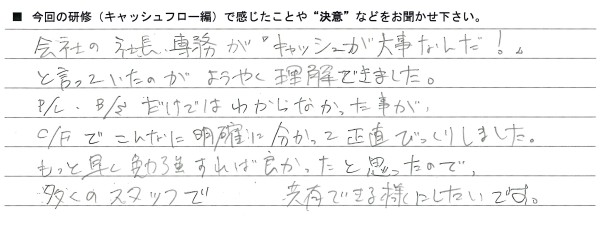 ■ 今回の研修（キャッシュフロー編）で感じたことや“決意”などをお聞かせ下さい。
会社の社長、専務が『キャッシュが大事なんだ！』
と言っていたのがようやく理解できました。
P/L・B/Sだけではわからなかった事が、
C/Fでこんなに明確に分かって正直びっくりしました。
もっと早く勉強すれば良かったと思ったので、
多くのスタッフで 共有できる様にしたいです。